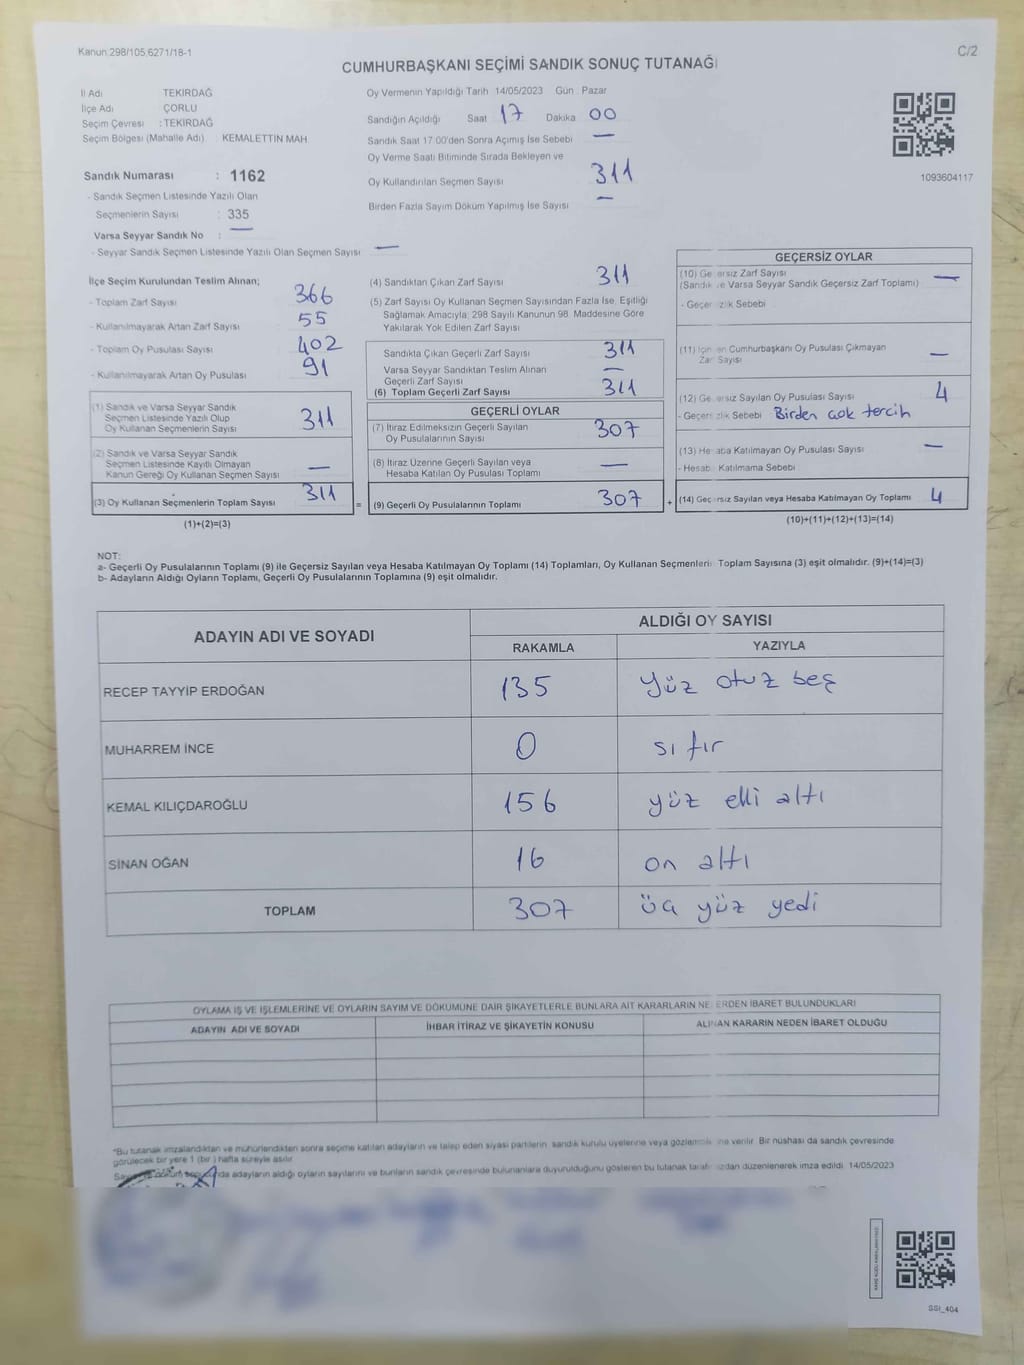 Kanun 298/105,6271/18-1
C/2
CUMHURBAŞKANI SEÇİMİ SANDIK SONUÇ TUTANAĞI
İl Adı TEKİRDAĞ
İlçe Adı ÇORLU
Seçim Çevresi : TEKİRDAĞ
Seçim Bölgesi (Mahalle Adı) : KEMALETTİN MAH
Oy Vermenin Yapıldığı Tarih 14/05/2023 Gün Pazar
Sandığın Açıldığı Saat 17 Dakika 00
Sandık Saat 17.00'den Sonra Açımış İse Sebebi —
Oy Verme Saati Bitiminde Sırada Bekleyen ve
Oy Kullandırılan Seçmen Sayısı 311
Birden Fazla Sayım Döküm Yapılmış İse Sayısı —
1093604117
Sandık Numarası : 1162
- Sandık Seçmen Listesinde Yazılı Olan
Seçmenlerin Sayısı : 335
Varsa Seyyar Sandık No : —
- Seyyar Sandık Seçmen Listesinde Yazılı Olan Seçmen Sayısı —
İlçe Seçim Kurulundan Teslim Alınan;
- Toplam Zarf Sayısı 366
- Kullanılmayarak Artan Zarf Sayısı 55
- Toplam Oy Pusulası Sayısı 402
- Kullanılmayarak Artan Oy Pusulası 91
(1) Sandık ve Varsa Seyyar Sandık
Seçmen Listesinde Yazılı Olup
Oy Kullanan Seçmenlerin Sayısı 311
(2) Sandık ve Varsa Seyyar Sandık
Seçmen Listesinde Kayıtlı Olmayan
Kanun Gereği Oy Kullanan Seçmen Sayısı —
(3) Oy Kullanan Seçmenlerin Toplam Sayısı 311
(1)+(2)=(3)
=
(4) Sandıktan Çıkan Zarf Sayısı 311
(5) Zarf Sayısı Oy Kullanan Seçmen Sayısından Fazla İse, Eşitliği
Sağlamak Amacıyla; 298 Sayılı Kanunun 98. Maddesine Göre
Yakılarak Yok Edilen Zarf Sayısı
Sandıkta Çıkan Geçerli Zarf Sayısı 311
Varsa Seyyar Sandıktan Teslim Alınan
Geçerli Zarf Sayısı —
(6) Toplam Geçerli Zarf Sayısı 311
GEÇERLİ OYLAR
(7) İtiraz Edilmeksizin Geçerli Sayılan
Oy Pusulalarının Sayısı 307
(8) İtiraz Üzerine Geçerli Sayılan veya
Hesaba Katılan Oy Pusulası Toplamı —
(9) Geçerli Oy Pusulalarının Toplamı 307
+
GEÇERSİZ OYLAR
(10) Ge ersiz Zarf Sayısı
(Sandık ve Varsa Seyyar Sandık Geçersiz Zarf Toplamı) —
- Geçer zlik Sebebi
(11) İçin en Cumhurbaşkanı Oy Pusulası Çıkmayan
Zar Sayısı —
(12) Ge ersiz Sayılan Oy Pusulası Sayısı 4
- Geçer zlik Sebebi Birden çok tercih
(13) He aba Katılmayan Oy Pusulası Sayısı —
- Hesab Katılmama Sebebi
(14) Geç rsiz Sayılan veya Hesaba Katılmayan Oy Toplamı 4
(10)+(11)+(12)+(13)=(14)
NOT:
a- Geçerli Oy Pusulalarının Toplamı (9) ile Geçersiz Sayılan veya Hesaba Katılmayan Oy Toplamı (14) Toplamları, Oy Kullanan Seçmenleri Toplam Sayısına (3) eşit olmalıdır. (9)+(14)=(3)
b- Adayların Aldığı Oyların Toplamı, Geçerli Oy Pusulalarının Toplamına (9) eşit olmalıdır.
ADAYIN ADI VE SOYADI ALDIĞI OY SAYISI
RAKAMLA YAZIYLA
RECEP TAYYİP ERDOĞAN 135 Yüz otuz beş
MUHARREM İNCE 0 sıfır
KEMAL KILIÇDAROĞLU 156 yüz elli altı
SİNAN OĞAN 16 on altı
TOPLAM 307 üç yüz yedi
OYLAMA İŞ VE İŞLEMLERİNE VE OYLARIN SAYIM VE DÖKÜMÜNE DAİR ŞİKAYETLERLE BUNLARA AİT KARARLARIN NE ERDEN İBARET BULUNDUKLARI
ADAYIN ADI VE SOYADI İHBAR İTİRAZ VE ŞİKAYETİN KONUSU ALINAN KARARIN NEDEN İBARET OLDUĞU
*Bu tutanak imzalandıktan ve mühürlendikten sonra seçime katılan adayların ve talep eden siyasi partilerin sandık kurulu üyelerine veya gözlemcilerine verilir. Bir nüshası da sandık çevresinde
görülecek bir yere 1 (bir ) hafta süreyle asılır.
adayların aldığı oyların sayılarını ve bunların sandık çevresinde bulunanlara duyurulduğunu gösteren bu tutanak taraf zdan düzenlenerek imza edildi. 14/05/2023
SSİ_404